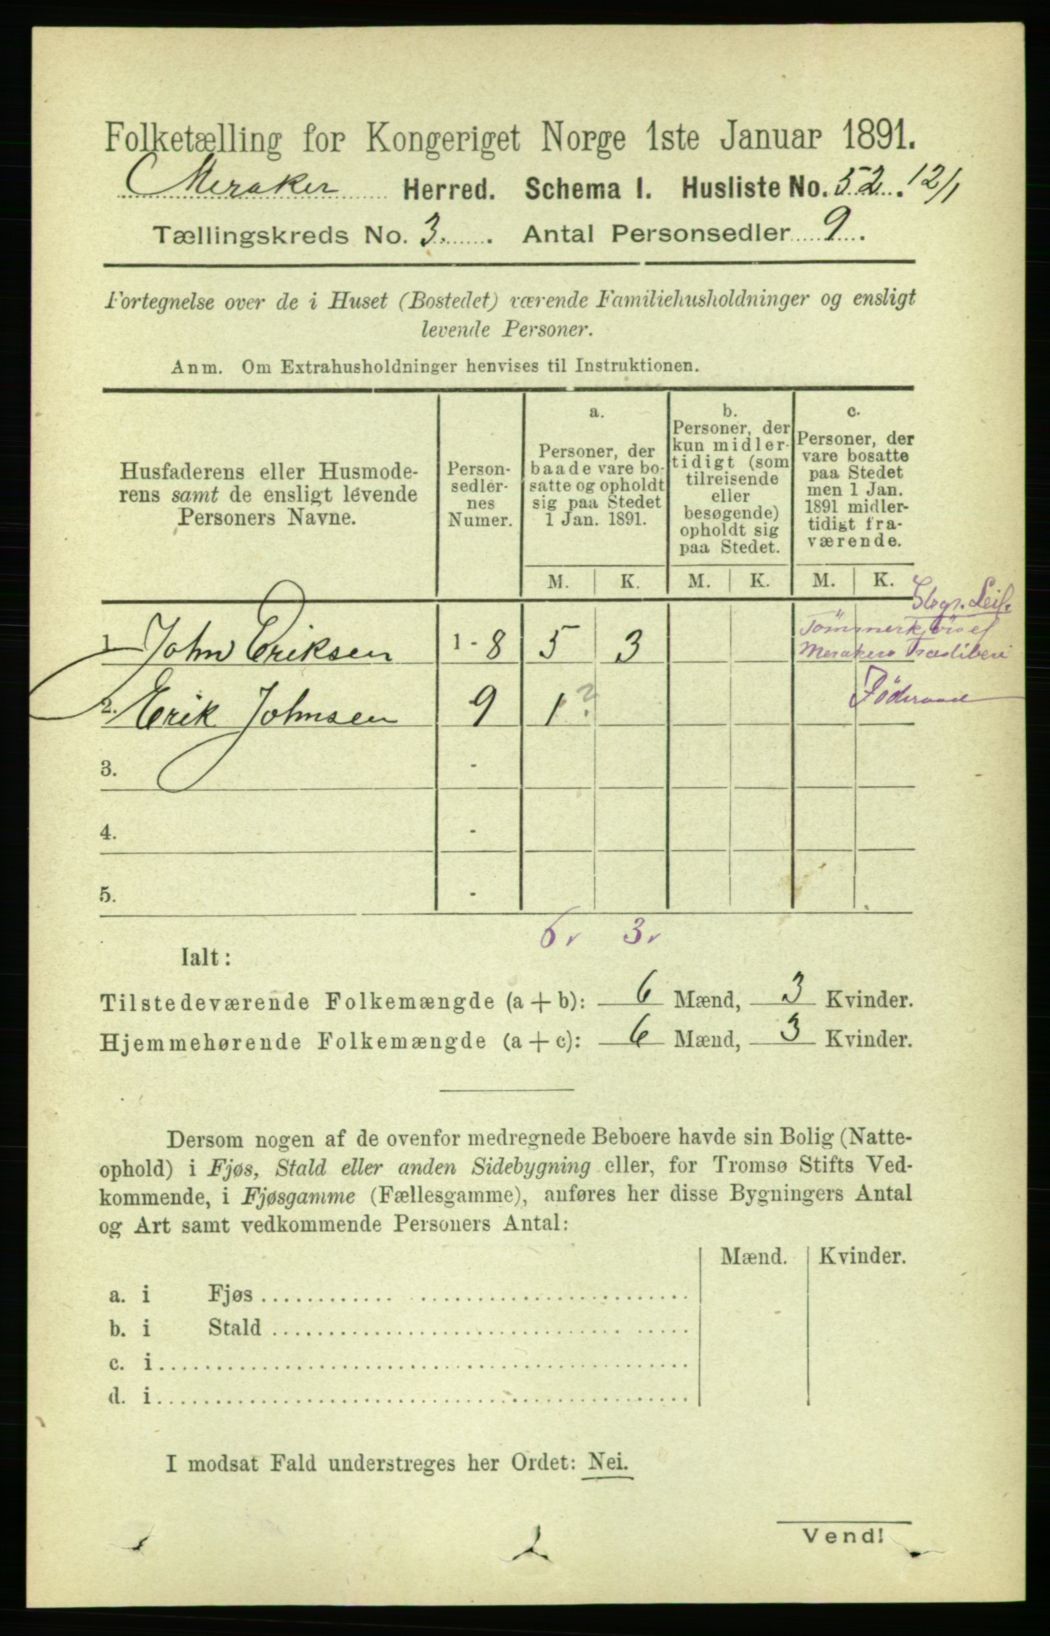 Folketælling for Kongeriget Norge 1ste Januar 1891.
Meraker Herred. Schema I. Husliste No. 52. 12/1
Tællingskreds No. 3. Antal Personsedler 9.
Fortegnelse over de i Huset (Bostedet) værende Familiehusholdninger og ensligt
levende Personer.
Anm. Om Extrahusholdninger henvises til Instruktionen.
Husfaderens eller Husmode-
rens samt de ensligt levende
Personers Navne.
Person-
sedler-
nes
Numer.
a.
Personer, der
baade vare bo-
satte og opholdt
sig paa Stedet
1 Jan. 1891.
b.
Personer, der
kun midler-
tidigt (som
tilreisende
eller
besøgende)
opholdt sig
paa Stedet.
c.
Personer, der
vare bosatte
paa Stedet
men 1 Jan.
1891 midler-
tidigt fra-
værende.
M. K. M. K. M. K.
1. John Eriksen 1-8 5 3
Meraker
2. Erik Johnsen 9 1 ? Föderaad
3. -
4. -
5. -
6 v 3 v
Ialt:
Tilstedeværende Folkemængde (a + b): 6 Mænd, 3 Kvinder.
Hjemmehørende Folkemængde (a + c): 6 Mænd, 3 Kvinder.
Dersom nogen af de ovenfor medregnede Beboere havde sin Bolig (Natte-
ophold) i Fjøs, Stald eller anden Sidebygning eller, for Tromsø Stifts Ved-
kommende, i Fjøsgamme (Fællesgamme), anføres her disse Bygningers Antal
og Art samt vedkommende Personers Antal:
Mænd. Kvinder.
a. i Fjøs
b. i Stald
c. i
d. i
I modsat Fald understreges her Ordet: Nei.
Vend!